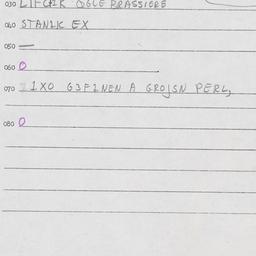 030 LIFCHIK OGLE BRASSIERE
040 STANLIK EX
050 —
060 O
070 1 IXO G3FINEN A GROJSN PERL,
080 O